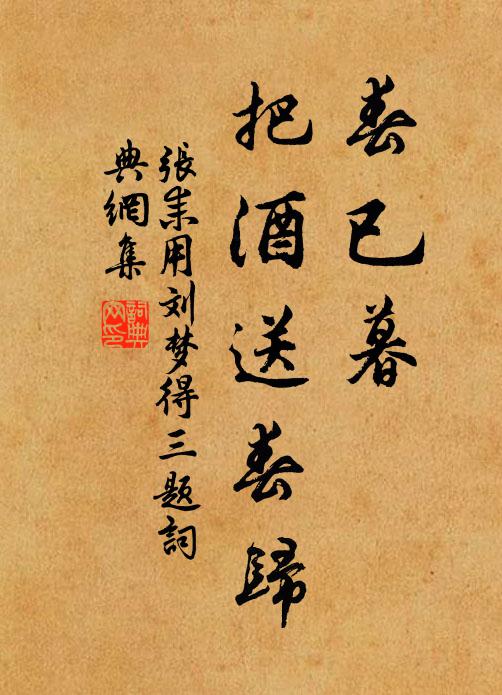 春已暮
把酒送春歸
張耒用刘梦得三题詞
典網集
詞典
网印